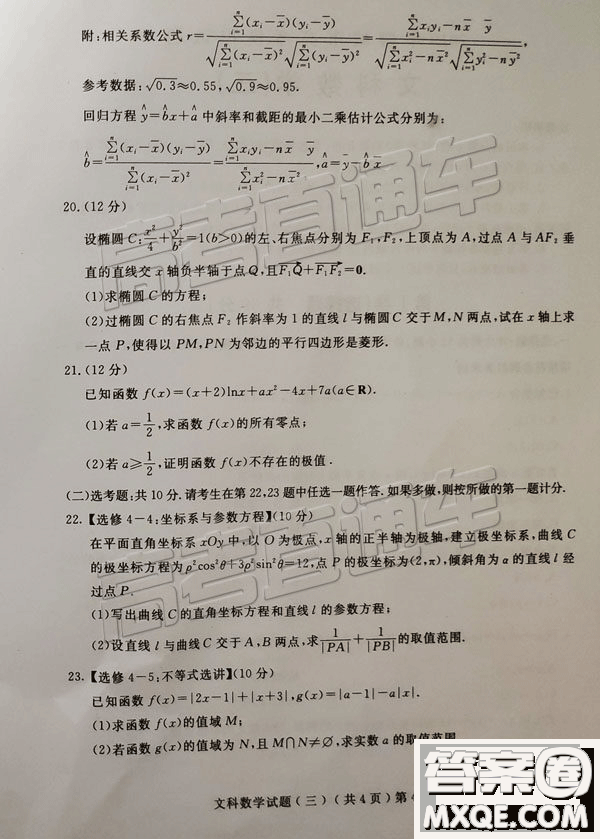 附:相关系数公式 r=\frac{\sum_{i=1}^{n}(x_i-\bar{x})(y_i-\bar{y})}{\sqrt{\sum_{i=1}^{n}(x_i-\bar{x})^2}\sqrt{\sum_{i=1}^{n}(y_i-\bar{y})^2}}=\frac{\sum_{i=1}^{n}x_iy_i-n\bar{x}\bar{y}}{\sqrt{\sum_{i=1}^{n}x_i^2-n\bar{x}^2}\sqrt{\sum_{i=1}^{n}y_i^2-n\bar{y}^2}},
参考数据:√0.3≈0.55,√0.9≈0.95.
回归方程 \hat{y}=\hat{b}x+\hat{a} 中斜率和截距的最小二乘估计公式分别为:
\hat{b}=\frac{\sum_{i=1}^{n}(x_i-\bar{x})(y_i-\bar{y})}{\sum_{i=1}^{n}(x_i-\bar{x})^2}=\frac{\sum_{i=1}^{n}x_iy_i-n\bar{x}\bar{y}}{\sum_{i=1}^{n}x_i^2-n\bar{x}^2},\hat{a}=\bar{y}-\hat{b}\bar{x}
20.(12分)
设椭圆C:\frac{x^2}{4}+\frac{y^2}{b^2}=1(b>0)的左、右焦点分别为F₁,F₂,上顶点为A,过点A与AF₂垂
直的直线交x轴负半轴于点Q,且\overrightarrow{F_1Q}+\overrightarrow{F_1F_2}=0.
(1)求椭圆C的方程;
(2)过椭圆C的右焦点F₂作斜率为1的直线l与椭圆C交于M,N两点,试在x轴上求
一点P,使得以PM,PN为邻边的平行四边形是菱形.
21.(12分)
已知函数 f(x)=(x+2)lnx+ax²-4x+7a(a∈R).
(1)若a=\frac{1}{2},求函数f(x)的所有零点;
(2)若a≥\frac{1}{2},证明函数f(x)不存在的极值.
(二)选考题:共10分.请考生在第22,23题中任选一题作答.如果多做,则按所做的第一题计分.
22.【选修4-4:坐标系与参数方程】(10分)
在平面直角坐标系xOy中,以O为极点,x轴的正半轴为极轴,建立极坐标系,曲线C
的极坐标方程为ρ²cos²θ+3ρ²sin²θ=12,点P的极坐标为(2,π),倾斜角为α的直线l经
过点P.
(1)写出曲线C的直角坐标方程和直线l的参数方程;
(2)设直线l与曲线C交于A,B两点,求\frac{1}{|PA|}+\frac{1}{|PB|}的取值范围.
23.【选修4-5:不等式选讲】(10分)
已知函数f(x)=|2x-1|+|x+3|,g(x)=|a-1|-a|x|.
(1)求函数f(x)的值域M;
(2)若函数g(x)的值域为N,且M∩N≠∅,求实数a的取值范围
文科数学试题(三) (共4页)第4
高考直通车
高考直通车
答案圈
MXQE.COM